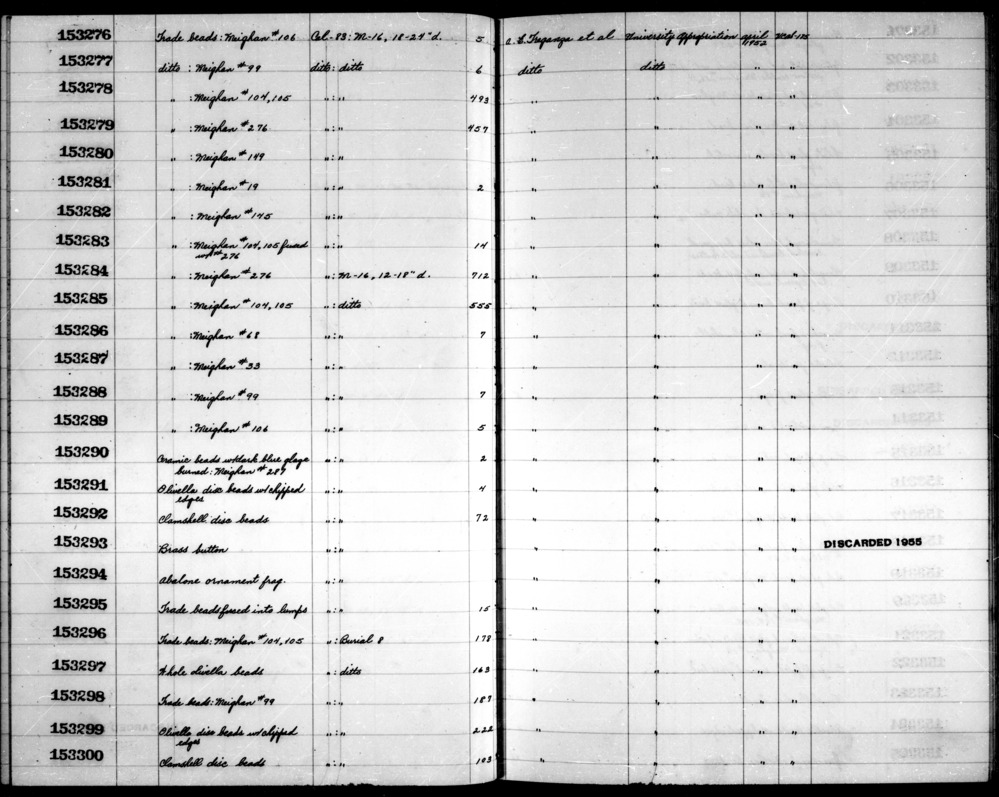 153276 Trade beads: Meighan #106 Col-83: M-16, 18-24" d. 5 A. E. Treganza et al University Appropriation April 1952
153277 ditto : Meighan #99 ditto: ditto 6 ditto ditto "
153278 " : Meighan #104, 105 " : " 493 " " " "
153279 " : Meighan #276 " : " 457 " " " "
153280 " : Meighan #149 " : " " " " "
153281 " : Meighan #19 " : " 2 " " " "
153282 " : Meighan #145 " : " " " " "
153283 " : Meighan #104, 105 fused " : " 14 " " " "
w/#276
153284 " : Meighan #276 " : M-16, 12-18" d. 712 " " " "
153285 " : Meighan #104, 105 " : ditto 555 " " " "
153286 " : Meighan #68 " : " 7 " " " "
153287 " : Meighan #33 " : " " " " "
153288 " : Meighan #99 " : " 7 " " " "
153289 " : Meighan #106 " : " 5 " " " "
153290 Ceramic beads w/dark blue glaze " : " 2 " " " "
burned: Meighan #287
153291 Olivella disc beads w/chipped " : " 4 " " " "
edges
153292 Clamshell disc beads " : " 72 " " " "
153293 Brass button " : " " " " " DISCARDED 1955
153294 Abalone ornament frag. " : " " " " "
153295 Trade beads fused into lumps " : " 15 " " " "
153296 Trade beads: Meighan #104, 105 " : Burial 8 178 " " " "
153297 Whole olivella beads " : ditto 163 " " " "
153298 Trade beads: Meighan #99 " : " 187 " " " "
153299 Olivella disc beads w/chipped " : " 222 " " " "
edges
153300 Clamshell disc beads " : " 103 " " " "